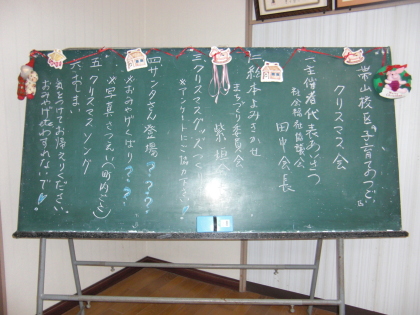 帯山校区子育てのつどい
クリスマス会
一、主催者代表あいさつ
社会福祉協議会
田中会長
二、絵本よみきかせ
まちづくり委員会
紫垣会
三、クリスマスグッズつくり
※アンケートにご協力下さい!!
四、サンタさん登場???
※おみやげくばり???
※写真さつえい(町内ごと)
五、クリスマスソング
六、おしまい
気をつけてお帰りください。
おみやげわすれないで!!